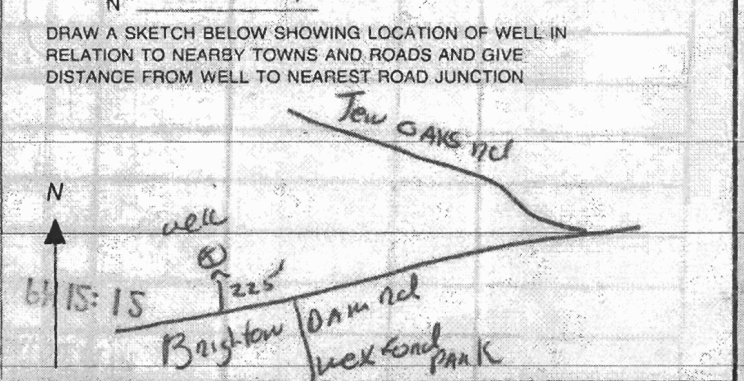 N
DRAW A SKETCH BELOW SHOWING LOCATION OF WELL IN
RELATION TO NEARBY TOWNS AND ROADS AND GIVE
DISTANCE FROM WELL TO NEAREST ROAD JUNCTION
Ten OAKS rd
N
well
225'
15:15
Brighton DAM rd
Wexford PARK